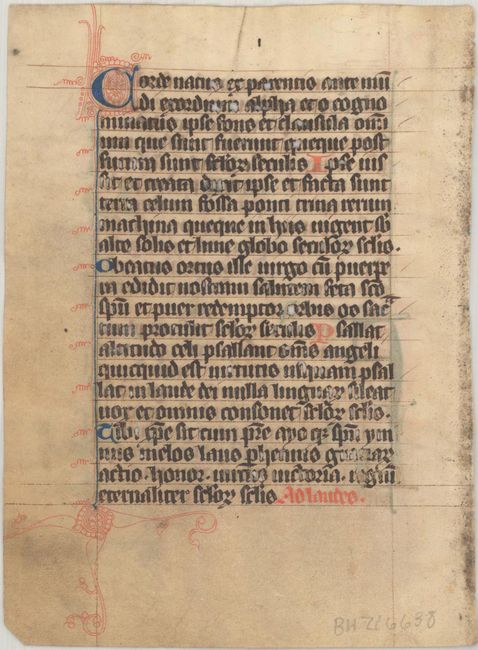 Corde natus ex parentis ante mū
di exordium alpha et o cogno
minatus ipse fons et clausula om̄
um que sunt fuerunt queque post
futura sunt sclor seculis Ipse ius
sit et creata dixit ipse et facta sunt
terra celum fossa ponti trina rerum
machina queque in hijs uigent sb
alto solis et lune globo seculor sclis.
O beatus ortus ille uirgo cū puerpe
ra edidit nostram salutem feta sco
spū et puer redemptor orbis os sac
rum protulit sclor seculis Psallat
altitudo celi psallant om̄s angeli
quicquid est uirtutis usquam psal
lat in laude dei nulla linguar sileat
uox et omnis consonet sclor sclis.
Tibi xpe sit cum pre agyo qz spū ym
nus melos laus phennis graciar
actio. honor. uirtus uictoria. regnū
eternaliter sclor sclis Ad laudes.
BH 216638